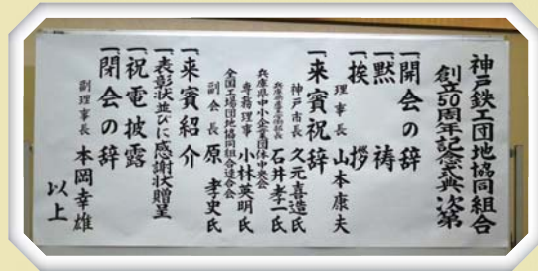 神戸鉄工団地協同組合
創立50周年記念式典 次第
一、開会の辞
一、黙祷
一、挨拶
理事長 山本康夫
一、来賓祝辞
神戸市長 久元喜造氏
石井孝一氏
兵庫県中小企業団体中央会
専務理事 小林英明氏
全国工場団地協同組合連合会
副会長 原 孝史氏
一、来賓紹介
一、表彰状並びに感謝状贈呈
一、祝電披露
一、閉会の辞
副理事長 本岡幸雄
以上